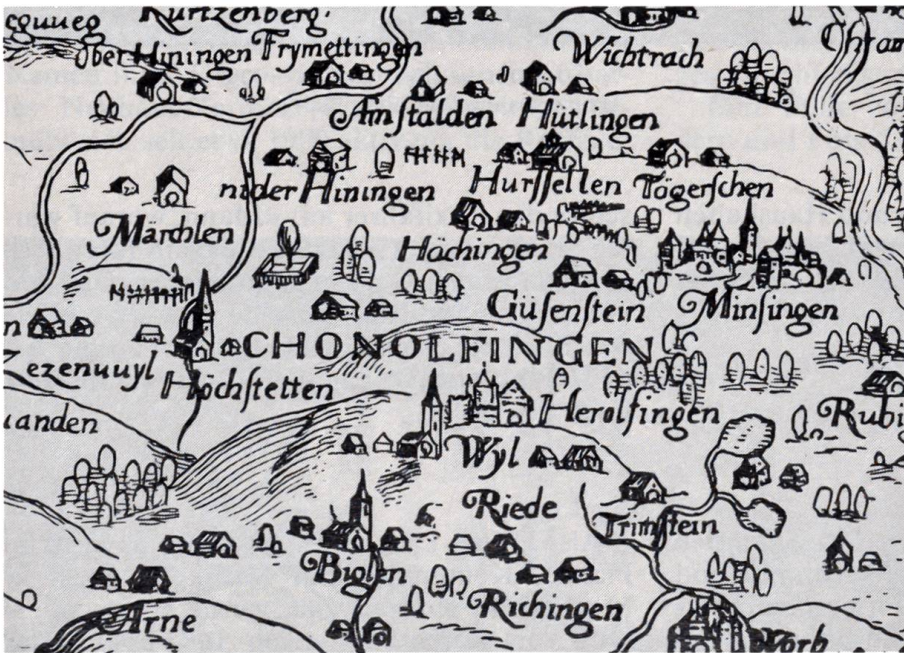 Kurtzenberg.
Ober Hiningen
Frymettingen
Wichtrach
Amstalden
Hütlingen
nider Hiningen
Hurssellen
Tögerschen
Märchlen
Höchingen
Güsenstein
Minsingen
CHONOLFINGEN
ezenuuyl
Höchstetten
Herolfingen
Rubi
uanden
Wyl
Riede
Trimstein
Biglen
Richingen
Arne
Worb